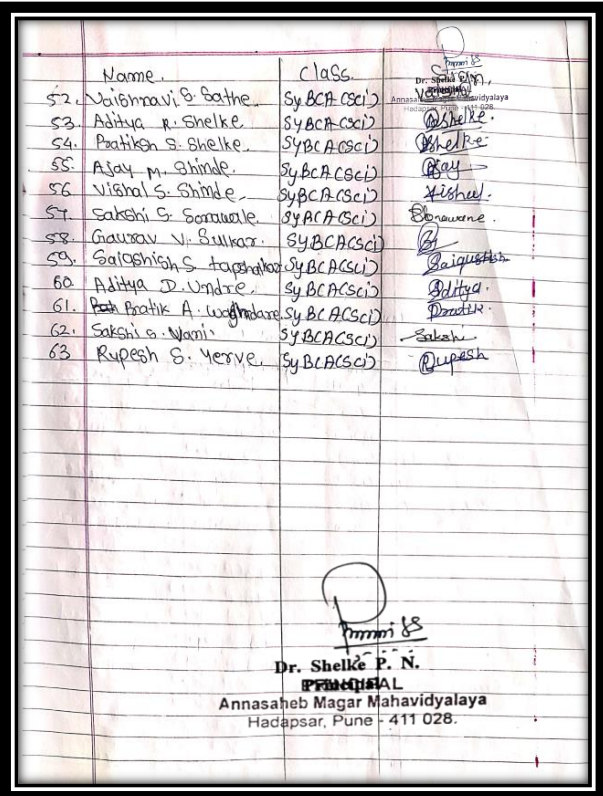 Name. Class. Sign,
52. Vaishnavi S. Sathe SyBCA(Sci)
53. Aditya R. Shelke SyBCA(Sci) AShelke.
54. Pratiksh S. Shelke. SyBCA(Sci) PShelke.
55. Ajay M. Shinde. SyBCA(Sci) Ajay
56. Vishal S. Shinde SyBCA(Sci) Vishal.
57. Sakshi S. Sonawale SyBCA(Sci) Sonawane.
58. Gaurav V. Sulkar. SyBCA(Sci)
59. Saiashish S. SyBCA(Sci) Saiashish
60. Aditya D. Undre. SyBCA(Sci) Aditya.
61. Pratik A. Waghdare SyBCA(Sci) Pratik.
62. Sakshi S. Nami. SyBCA(Sci) Sakshi
63 Rupesh S. Yerve. SyBCA(Sci) Rupesh
Dr. Shelke P. N.
PRINCIPAL
Annasaheb Magar Mahavidyalaya
Hadapsar, Pune - 411 028.